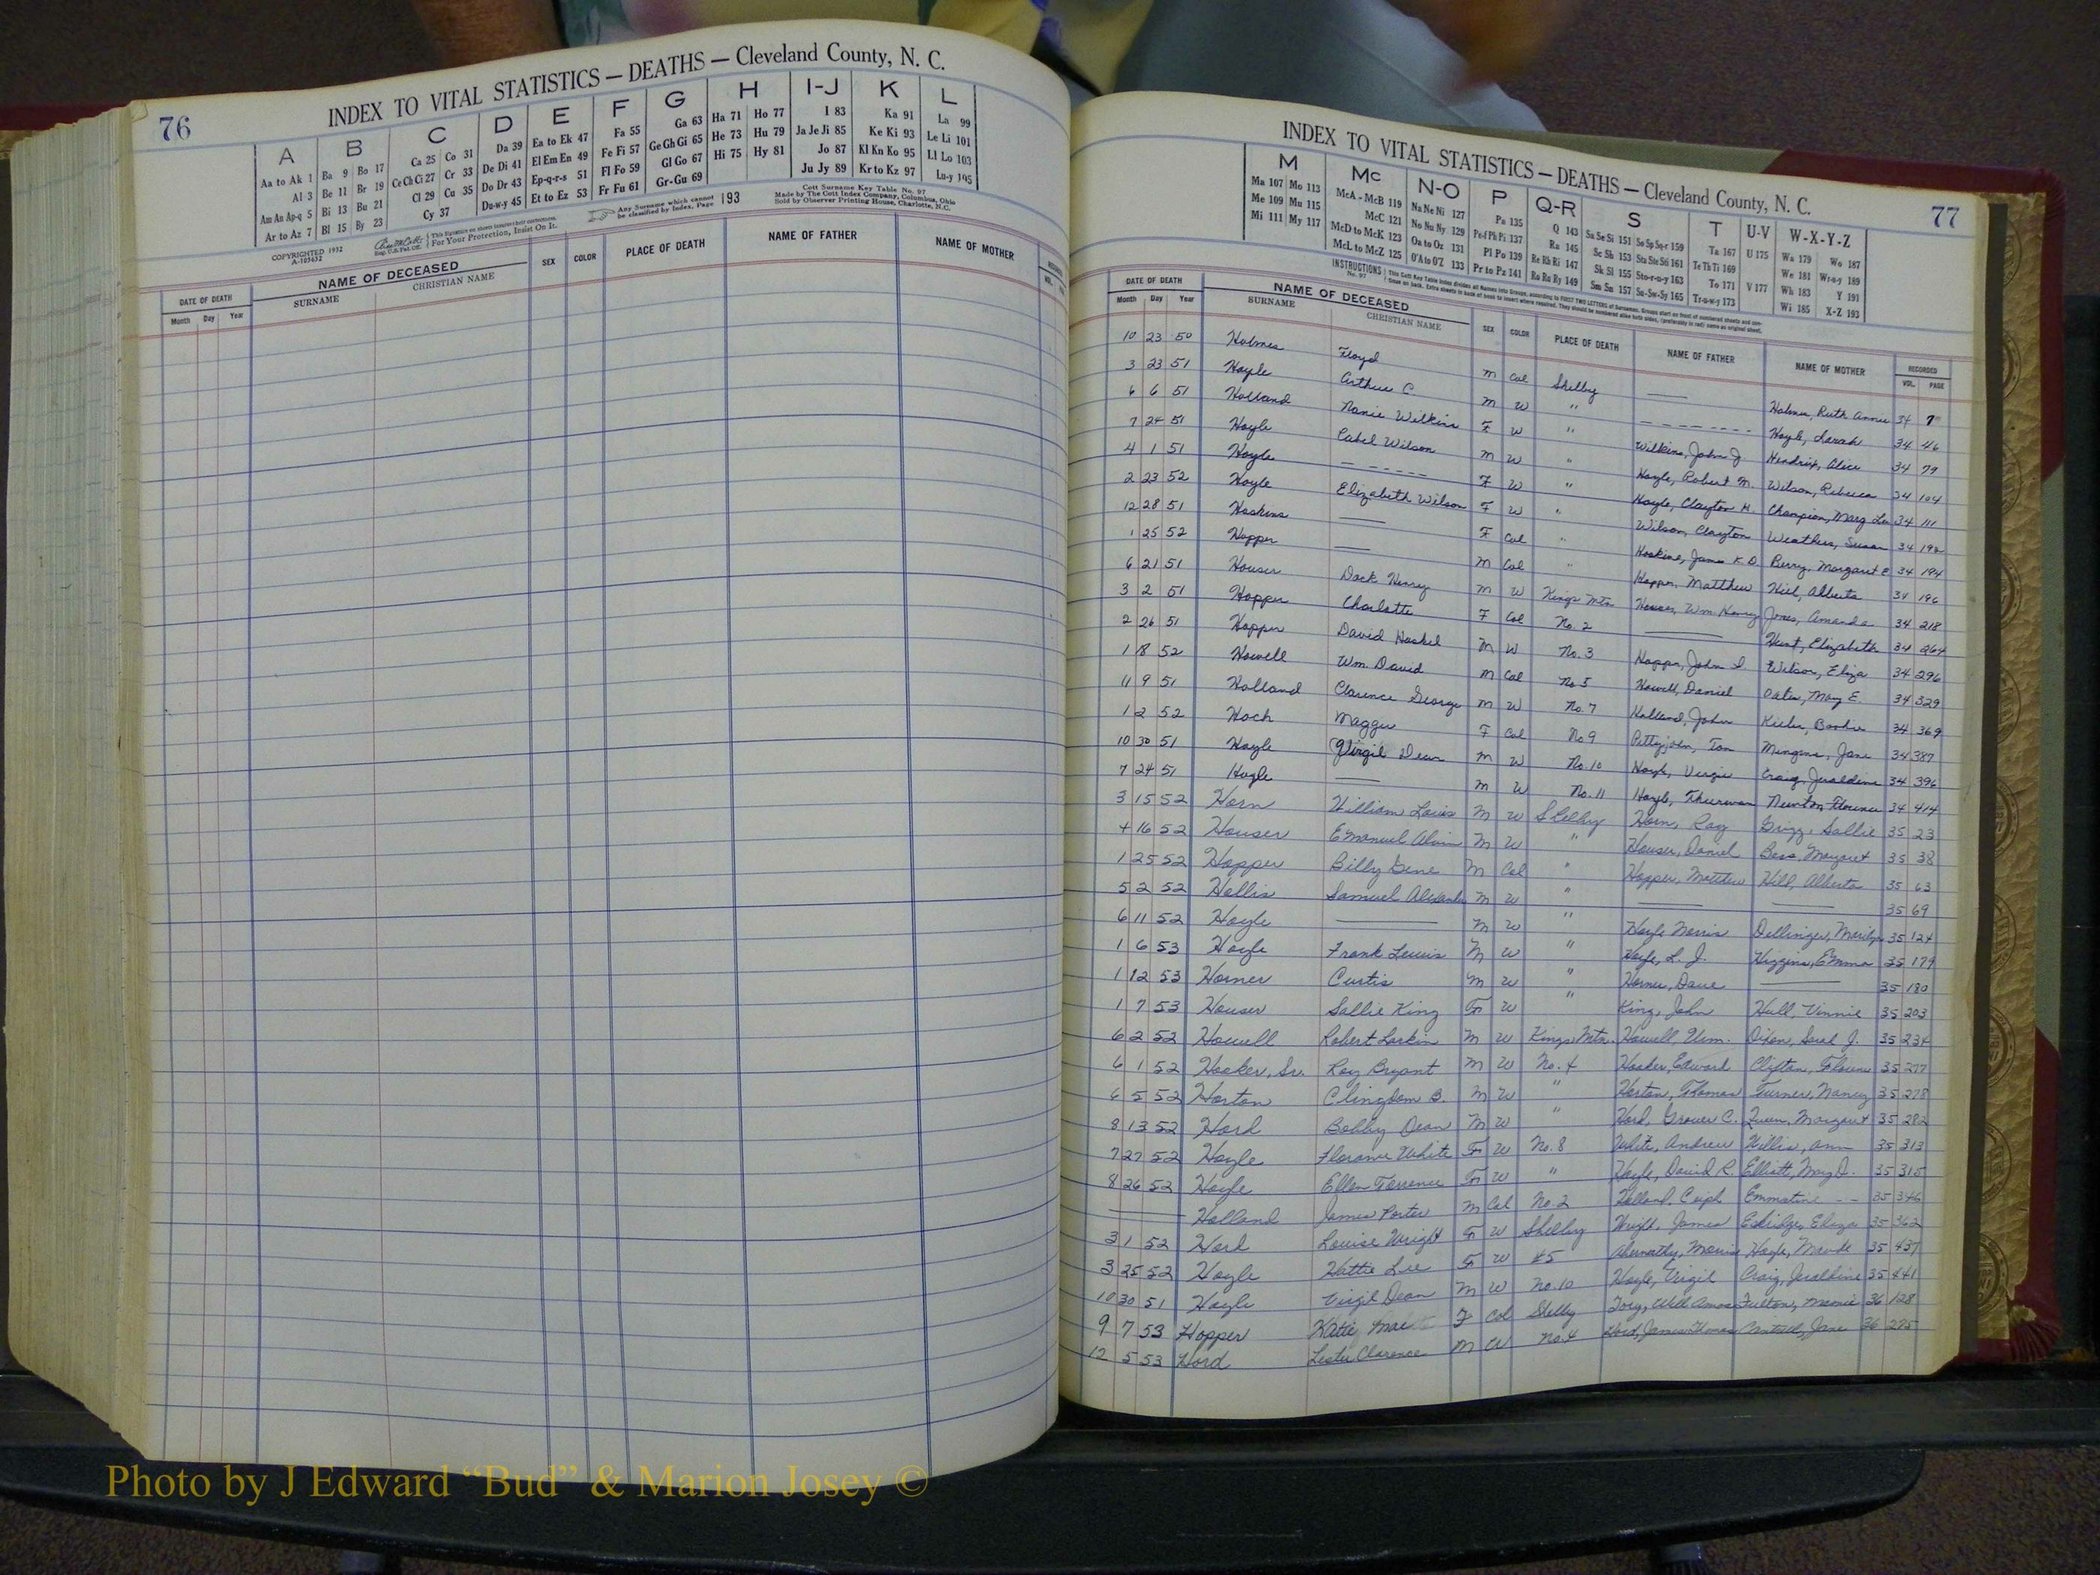 76
INDEX TO VITAL STATISTICS — DEATHS — Cleveland County, N. C.
A B C D E F G H I-J K L
Aa to Ak 1 Ba 9 Bo 17 Ca 25 Co 31 Da 39 Ea to Ek 47 Fa 55 Ga 63 Ha 71 Ho 77 I 83 Ka 91 La 99
Al 3 Be 11 Br 19 Ce Ch Ci 27 Cr 33 De Di 41 El Em En 49 Fe Fi 57 Ge Gh Gi 65 He 73 Hu 79 Ja Je Ji 85 Ke Ki 93 Le Li 101
Am An Ap-q 5 Bi 13 Bu 21 Cl 29 Cu 35 Do Dr 43 Ep-q-r-s 51 Fl Fo 59 Gl Go 67 Hi 75 Hy 81 Jo 87 Kl Kn Ko 95 Ll Lo 103
Ar to Az 7 Bl 15 By 23 Cy 37 Du-w-y 45 Et to Ez 53 Fr Fu 61 Gr-Gu 69 Ju Jy 89 Kr to Kz 97 Lu-y 105
COPYRIGHTED 1932
A-105652
For Your Protection, Insist On It.
Any Surname which cannot be classified by Index, Page 193
Cott Surname Key Table No. 97
Made by The Cott Index Company, Columbus, Ohio
Sold by Observer Printing House, Charlotte, N.C.
DATE OF DEATH NAME OF DECEASED SEX COLOR PLACE OF DEATH NAME OF FATHER NAME OF MOTHER
Month Day Year SURNAME CHRISTIAN NAME
INDEX TO VITAL STATISTICS — DEATHS — Cleveland County, N. C.
77
M Mc N-O P Q-R S T U-V W-X-Y-Z
Ma 107 Mo 113 McA - McB 119 Na Ne Ni 127 Pa 135 Q 143 Sa Se Si 151 So Sp Sq-r 159 Ta 167 U 175 Wa 179 Wo 187
Me 109 Mu 115 McC 121 No Nu Ny 129 Pe-f Ph Pi 137 Ra 145 Sc Sh 153 Sta Ste Sti 161 Te Th Ti 169 We 181 Wr-u-y 189
Mi 111 My 117 McD to McK 123 Oa to Oz 131 Pl Po 139 Re Rh Ri 147 Sk Sl 155 Sto-r-u-y 163 To 171 V 177 Wh 183 Y 191
McL to McZ 125 O'A to O'Z 133 Pr to Pz 141 Ro Ru Ry 149 Sm Sn 157 Su-Sw-Sy 165 Tr-u-w-y 173 Wi 185 X-Z 193
DATE OF DEATH NAME OF DECEASED SEX COLOR PLACE OF DEATH NAME OF FATHER NAME OF MOTHER RECORDED
Month Day Year SURNAME CHRISTIAN NAME VOL. PAGE
10 23 50 Holmes Floyd M Col Shelby — Holmes, Ruth Annie 34 7
3 23 51 Hoyle Arthur C. M W " - - - - Hoyle, Sarah 34 46
6 6 51 Holland Nanie Wilkins F W " Wilkins, John J Hendrix, Alice 34 79
7 24 51 Hoyle Cabel Wilson M W " Hoyle, Robert M. Wilson, Rebecca 34 104
4 1 51 Hoyle - - - - - F W " Hoyle, Clayton H. Champion, Marg Lee 34 111
2 23 52 Hoyle Elizabeth Wilson F W " Wilson, Clayton Weathers, Susan 34 192
12 28 51 Hoskins — F Col " Hoskins, James K.D. Perry, Margaret E 34 194
1 25 52 Hopper — M Col " Hopper, Matthew Hill, Alberta 34 196
6 21 51 Houser Dock Henry M W Kings Mtn Houser, Wm Henry Jones, Amanda 34 218
3 2 51 Hopper Charlotte F Col No. 2 — Hunt, Elizabeth 34 264
2 26 51 Hopper David Haskel M W No. 3 Hopper, John Wilson, Eliza 34 296
1 18 52 Howell Wm. David M Col No 5 Howell, Daniel Oates, May E. 34 329
11 9 51 Holland Clarence George M W No. 7 Holland, John 34 369
1 2 52 Hoch Maggie F Col No 9 Pettyjohn, Tom Jane 34 387
10 30 51 Hoyle Virgil Dean M W No. 10 Hoyle, Virgie Craig, Jeraldine 34 396
7 24 51 Hoyle — M W No. 11 Hoyle, Thurman Newton, Florence 34 414
3 15 52 Horn William Louis M W Shelby Horn, Ray Grigg, Sallie 35 23
4 16 52 Houser Emanuel Alvin M W " Houser, Daniel Bess, Margaret 35 38
1 25 52 Hopper Billy Gene M Col " Hopper, Matthew Hill, Alberta 35 63
5 2 52 Hollis Samuel Alexander M W " — — 35 69
6 11 52 Hoyle — M W " Hoyle Norris Dellinger, Marilyn 35 124
1 6 53 Hoyle Frank Lewis M W " Hoyle, L. J. Higgins, Emma 35 179
1 12 53 Horner Curtis M W " Horner, Dave — 35 180
1 7 53 Houser Sallie King F W " King, John Hull, Vinnie 35 203
6 2 52 Howell Robert Larkin M W Kings Mtn. Howell, Wm. Dixon, Sarah J. 35 234
6 1 52 Hooker, Sr. Roy Bryant M W No. 4 Hooker, Edward Clifton, Florence 35 277
6 5 52 Horton Clingdom B. M W " Horton, Thomas Turner, Nancy 35 278
8 13 52 Hord Bobby Dean M W " Hord, Grover C. Queen, Margaret 35 282
7 27 52 Hoyle Florance White F W No. 8 White, Andrew Willis, Ann 35 313
8 26 52 Hoyle Ellen Torrence F W " Hoyle, David R. Elliott, May D. 35 315
— Holland James Porter M Col No 2 Holland, Ceiph Emmaline -- 35 346
3 1 52 Hord Louise Wright F W Shelby Wright, James Eskridge, Eliza 35 362
3 25 52 Hoyle Hattie Lee F W #5 Abernathy, Morris Hoyle, Maude 35 437
10 30 51 Hoyle Virgil Dean M W No. 10 Hoyle, Virgil Craig, Jeraldine 35 441
9 7 53 Hopper Katie Mae F Col Shelby Will Amos Fulton, Mamie 36 128
12 5 53 Hord Lester Clarence M W No. 4 Hord, James Thomas Cantrell, Jane 36 275
Photo by J Edward "Bud" & Marion Josey ©